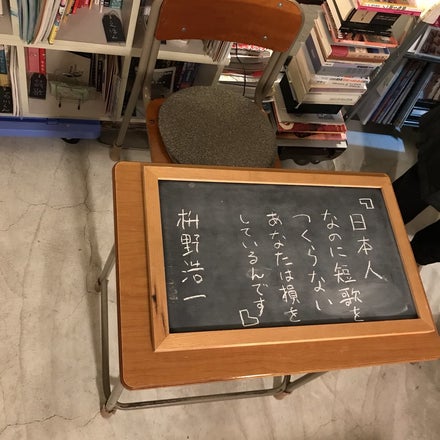 『日本人
なのに短歌を
つくらない
あなたは損を
しているんです』
枡野浩一